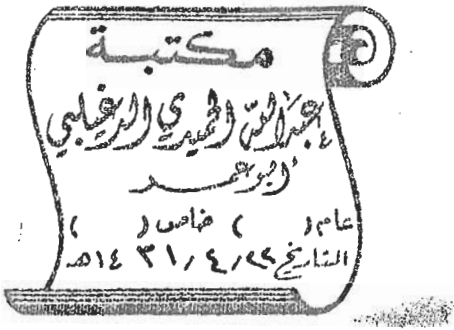 مكتبة
عبدالله الحميدي الدغيلبي
أبو عمر
عام ( ) خاص ( )
التاريخ ٢٢ / ٤ / ١٤٣١هـ